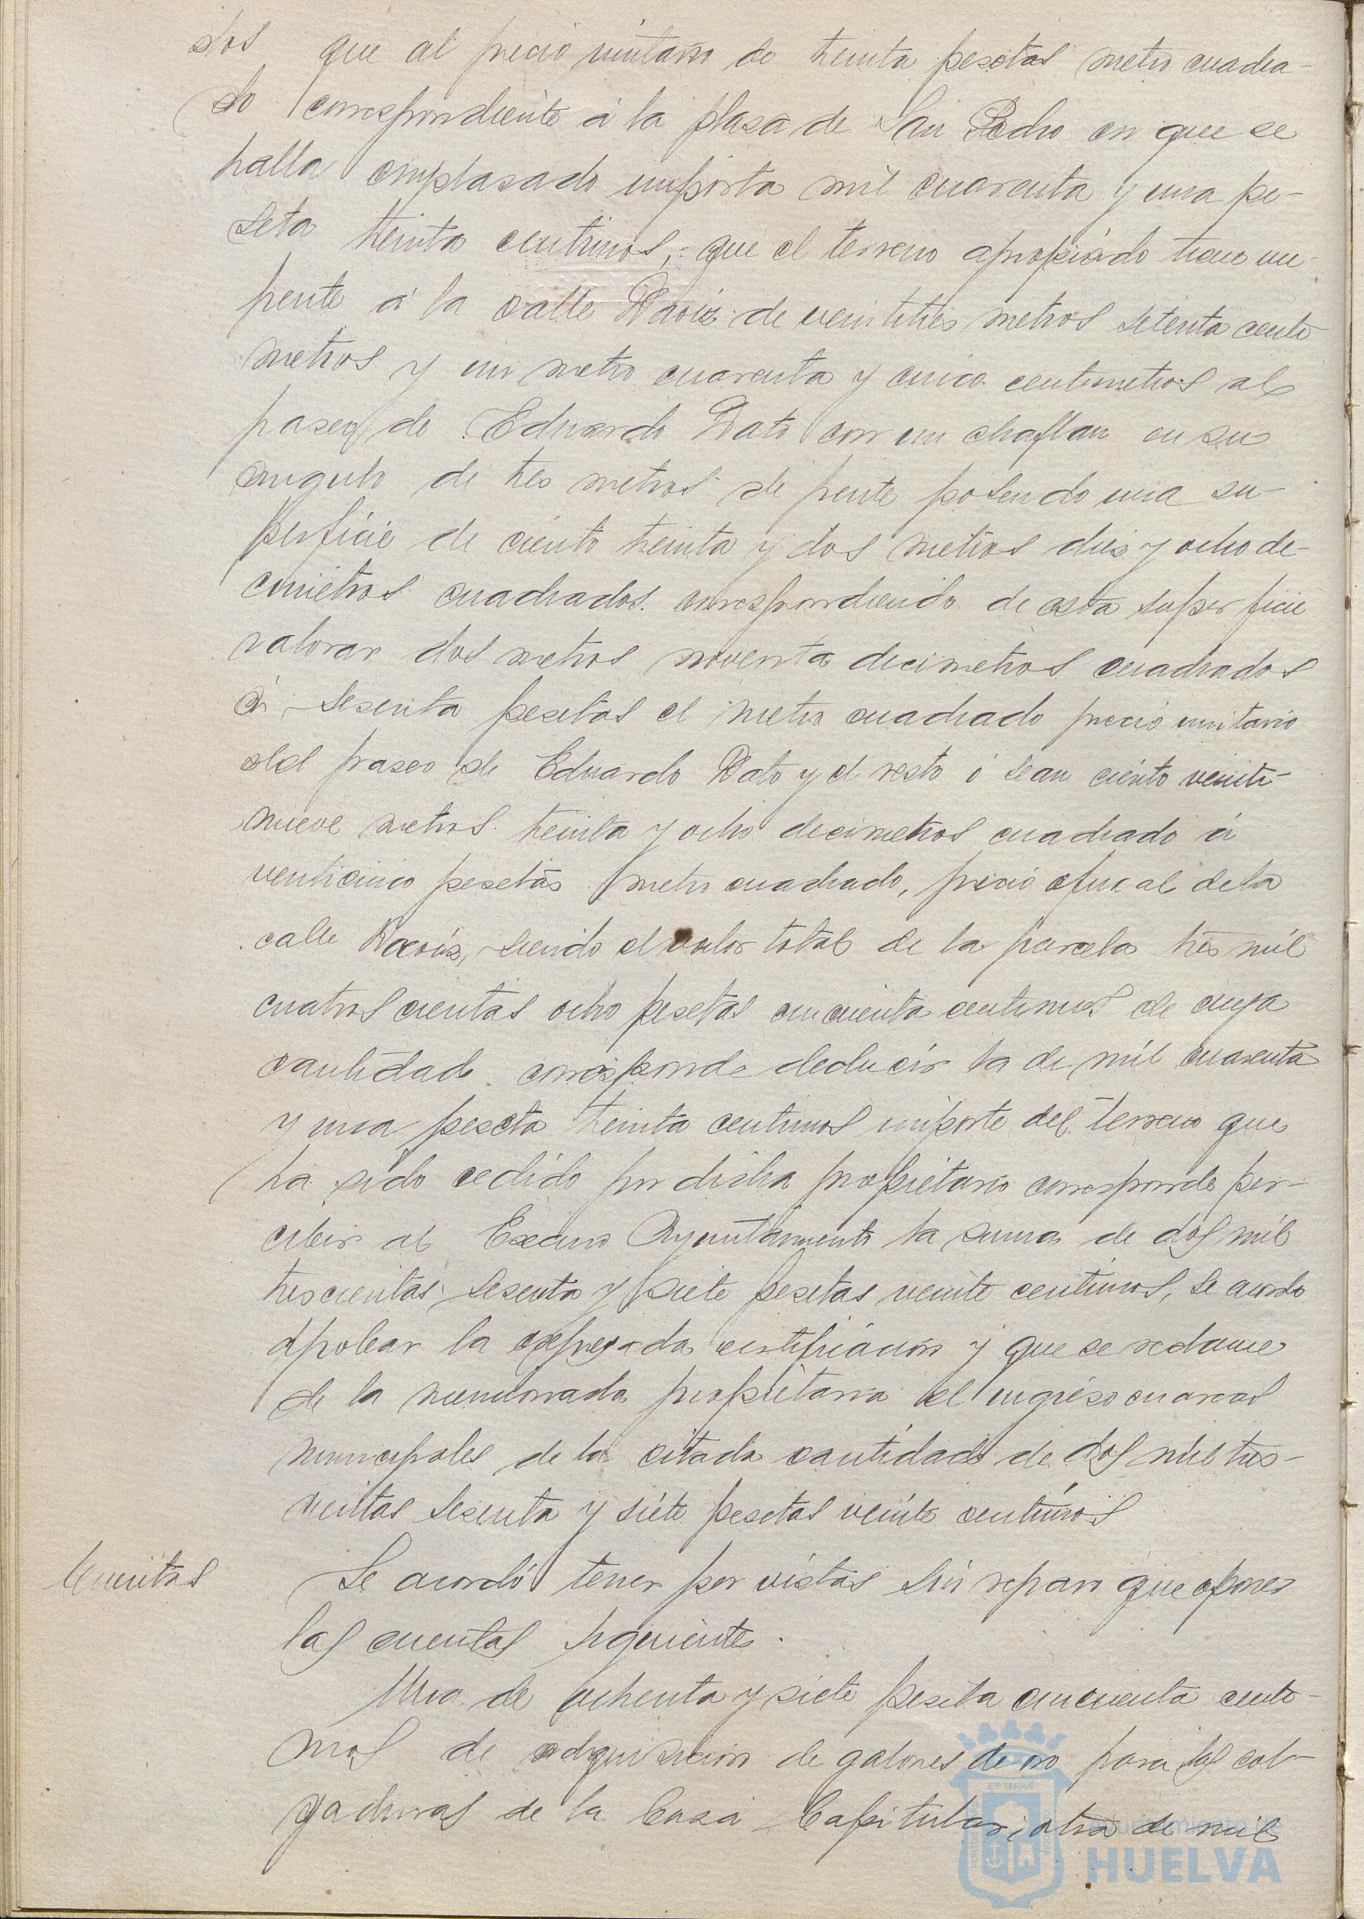 dos que al precio unitario de treinta pesetas metro cuadra-
do correspondiente á la plasa de San Pedro en que se
halla emplasado importa mil cuarenta y una pe-
seta treinta centimos; que el terreno apropiado tiene un
frente á la calle Daoiz de veintitres metros setenta centi
metros y un metro cuarenta y cinco centimetros al
paseo de Eduardo Dato con un chaflan en su
angulo de tres metros de frente poseendo una su-
perficie de ciento treinta y dos metros dies y ocho de-
cimetros cuadrados correspondiendo de esta superficie
valorar dos metros noventa decimetros cuadrados
á sesenta pesetas el metro cuadrado precio unitario
del paseo de Eduardo Dato y el resto ó sean ciento veinti-
nueve metros treinta y ocho decimetros cuadrado á
venticinco pesetas metro cuadrado, precio oficial de la
calle Daoiz, siendo el valor total de la parcela tres mil
cuatros cientas ocho pesetas cincuenta centimos de cuya
cantidad corresponde deducir la de mil cuarenta
y una peseta treinta centimos importe del terreno que
ha sido cedido por dicha propietario corresponde per-
cibir al Excmo Ayuntamiento la suma de dos mil
trescientas sesenta y siete pesetas veinte centimos, se acordo
aprobar la expresada certificacion y que se reclame
de la mencionada propietaria el ingreso en arcas
municipales de la citada cantidad de dos mil tres-
cientas sesenta y siete pesetas veinte centimos
Cuentas Se acordó tener por vistas sin reparo que oponer
las cuentas siguientes.
Una de ochenta y siete peseta cincuenta centi-
mos de adquisicion de galones de oro para las col-
gaduras de la Casa Capitular; otra de mil
Ayuntamiento de
HUELVA